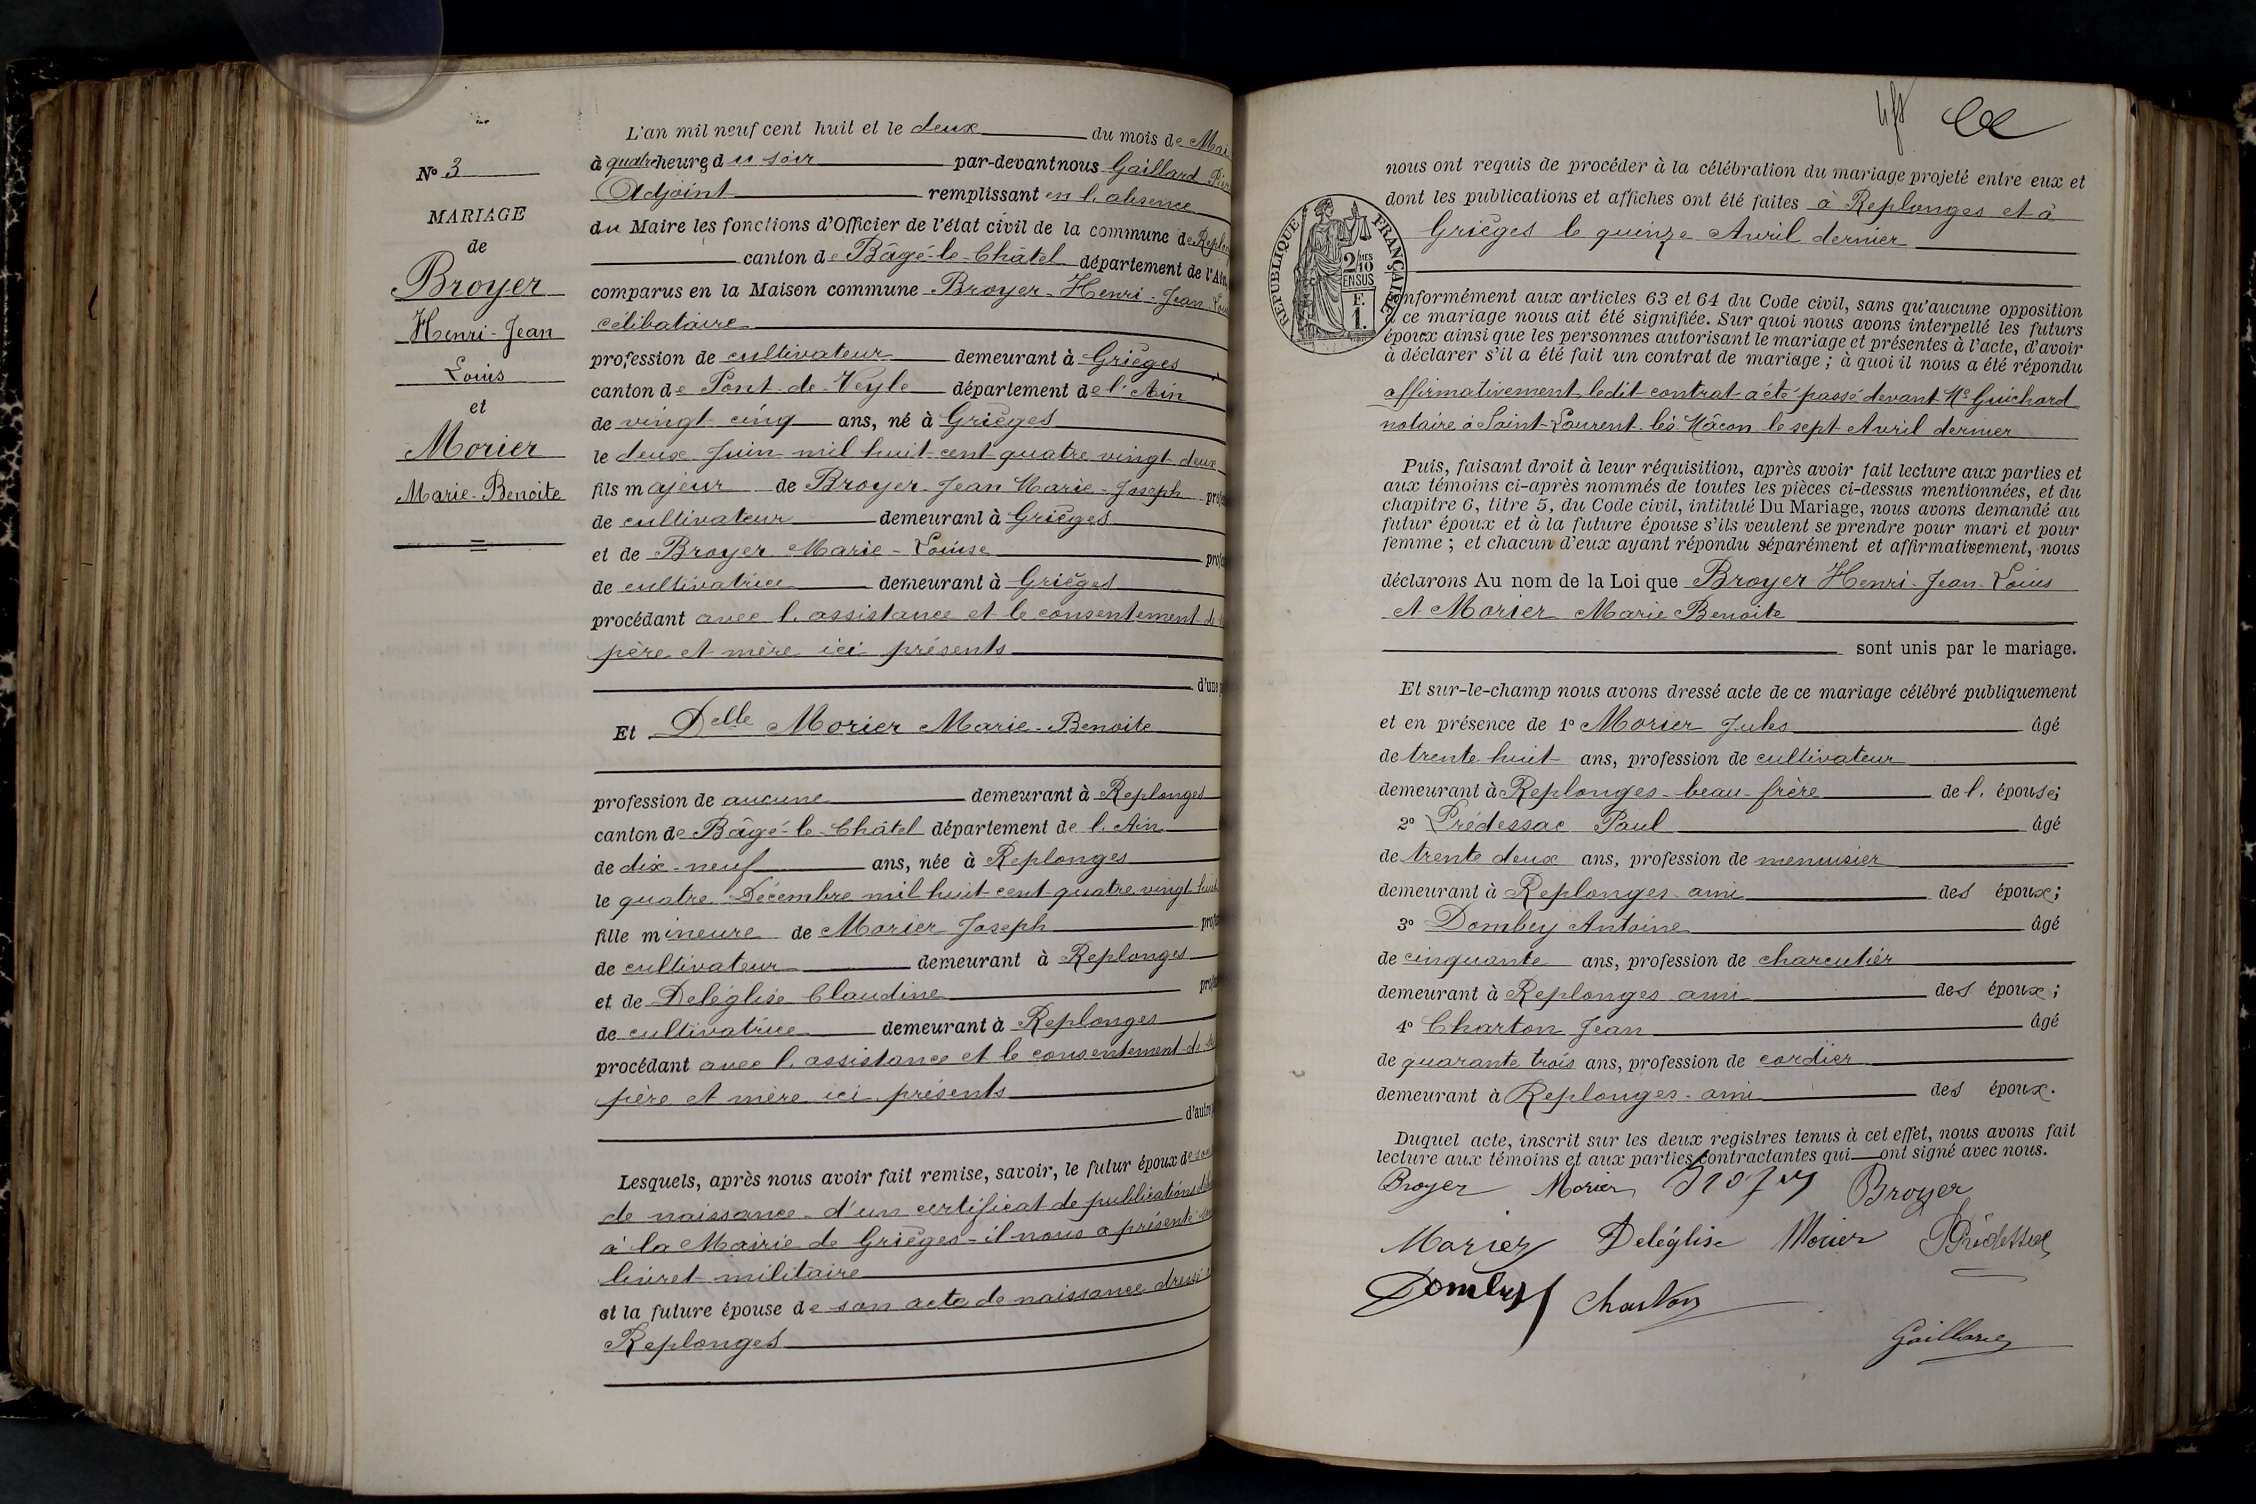 N° 3
MARIAGE
de
Broyer
Henri-Jean
Louis
et
Morier
Marie-Benoite
L'an mil neuf cent huit et le deux du mois de Mai
à quatre heures du soir par-devant nous Gaillard
Adjoint remplissant en l'absence
du Maire les fonctions d'Officier de l'état civil de la commune de
canton de Bâgé-le-Châtel département de l'Ain,
comparus en la Maison commune Broyer-Henri-Jean
célibataire
profession de cultivateur demeurant à Grièges
canton de Pont-de-Veyle département de l'Ain
de vingt cinq ans, né à Grièges
le deux Juin mil huit cent quatre vingt deux
fils majeur de Broyer Jean Marie-Joseph
de cultivateur demeurant à Grièges
et de Broyer Marie-Louise
de cultivatrice demeurant à Grièges
procédant avec l'assistance et le consentement de
père et mère ici présents
d'une
Et Delle Morier Marie-Benoite
profession de aucune demeurant à Replonges
canton de Bâgé-le-Châtel département de l'Ain
de dix-neuf ans, née à Replonges
le quatre Décembre mil huit cent quatre vingt huit
fille mineure de Morier Joseph
de cultivateur demeurant à Replonges
et de Deléglise Claudine
de cultivatrice demeurant à Replonges
procédant avec l'assistance et le consentement de
père et mère ici présents
d'autre
Lesquels, après nous avoir fait remise, savoir, le futur époux de
de naissance - d'un certificat de publications
à la Mairie de Grièges - il nous a présenté
livret militaire
et la future épouse de son acte de naissance dressé
Replonges
nous ont requis de procéder à la célébration du mariage projeté entre eux et
dont les publications et affiches ont été faites à Replonges et à
Grièges le quinze Avril dernier
RÉPUBLIQUE FRANÇAISE
2/10 MES
EN SUS
F.
1.
onformément aux articles 63 et 64 du Code civil, sans qu'aucune opposition
ce mariage nous ait été signifiée. Sur quoi nous avons interpellé les futurs
époux ainsi que les personnes autorisant le mariage et présentes à l'acte, d'avoir
à déclarer s'il a été fait un contrat de mariage ; à quoi il nous a été répondu
affirmativement, ledit contrat a été passé devant Me Guichard
notaire à Saint-Laurent-lès Mâcon le sept Avril dernier
Puis, faisant droit à leur réquisition, après avoir fait lecture aux parties et
aux témoins ci-après nommés de toutes les pièces ci-dessus mentionnées, et du
chapitre 6, titre 5, du Code civil, intitulé Du Mariage, nous avons demandé au
futur époux et à la future épouse s'ils veulent se prendre pour mari et pour
femme ; et chacun d'eux ayant répondu séparément et affirmativement, nous
déclarons Au nom de la Loi que Broyer Henri-Jean-Louis
et Morier Marie Benoite
sont unis par le mariage.
Et sur-le-champ nous avons dressé acte de ce mariage célébré publiquement
et en présence de 1° Morier Jules âgé
de trente huit ans, profession de cultivateur
demeurant à Replonges-beau-frère de l'épouse;
2° Prédessac Paul âgé
de trente deux ans, profession de menuisier
demeurant à Replonges-ami des époux;
3° Dombey Antoine âgé
de cinquante ans, profession de charcutier
demeurant à Replonges ami des époux;
4° Charton Jean âgé
de quarante trois ans, profession de cordier
demeurant à Replonges-ami des époux.
Duquel acte, inscrit sur les deux registres tenus à cet effet, nous avons fait
lecture aux témoins et aux parties contractantes qui ont signé avec nous.
Broyer Morier Broyer
Morier Deléglise Morier Prédessac
Dombey Charton
Gaillard